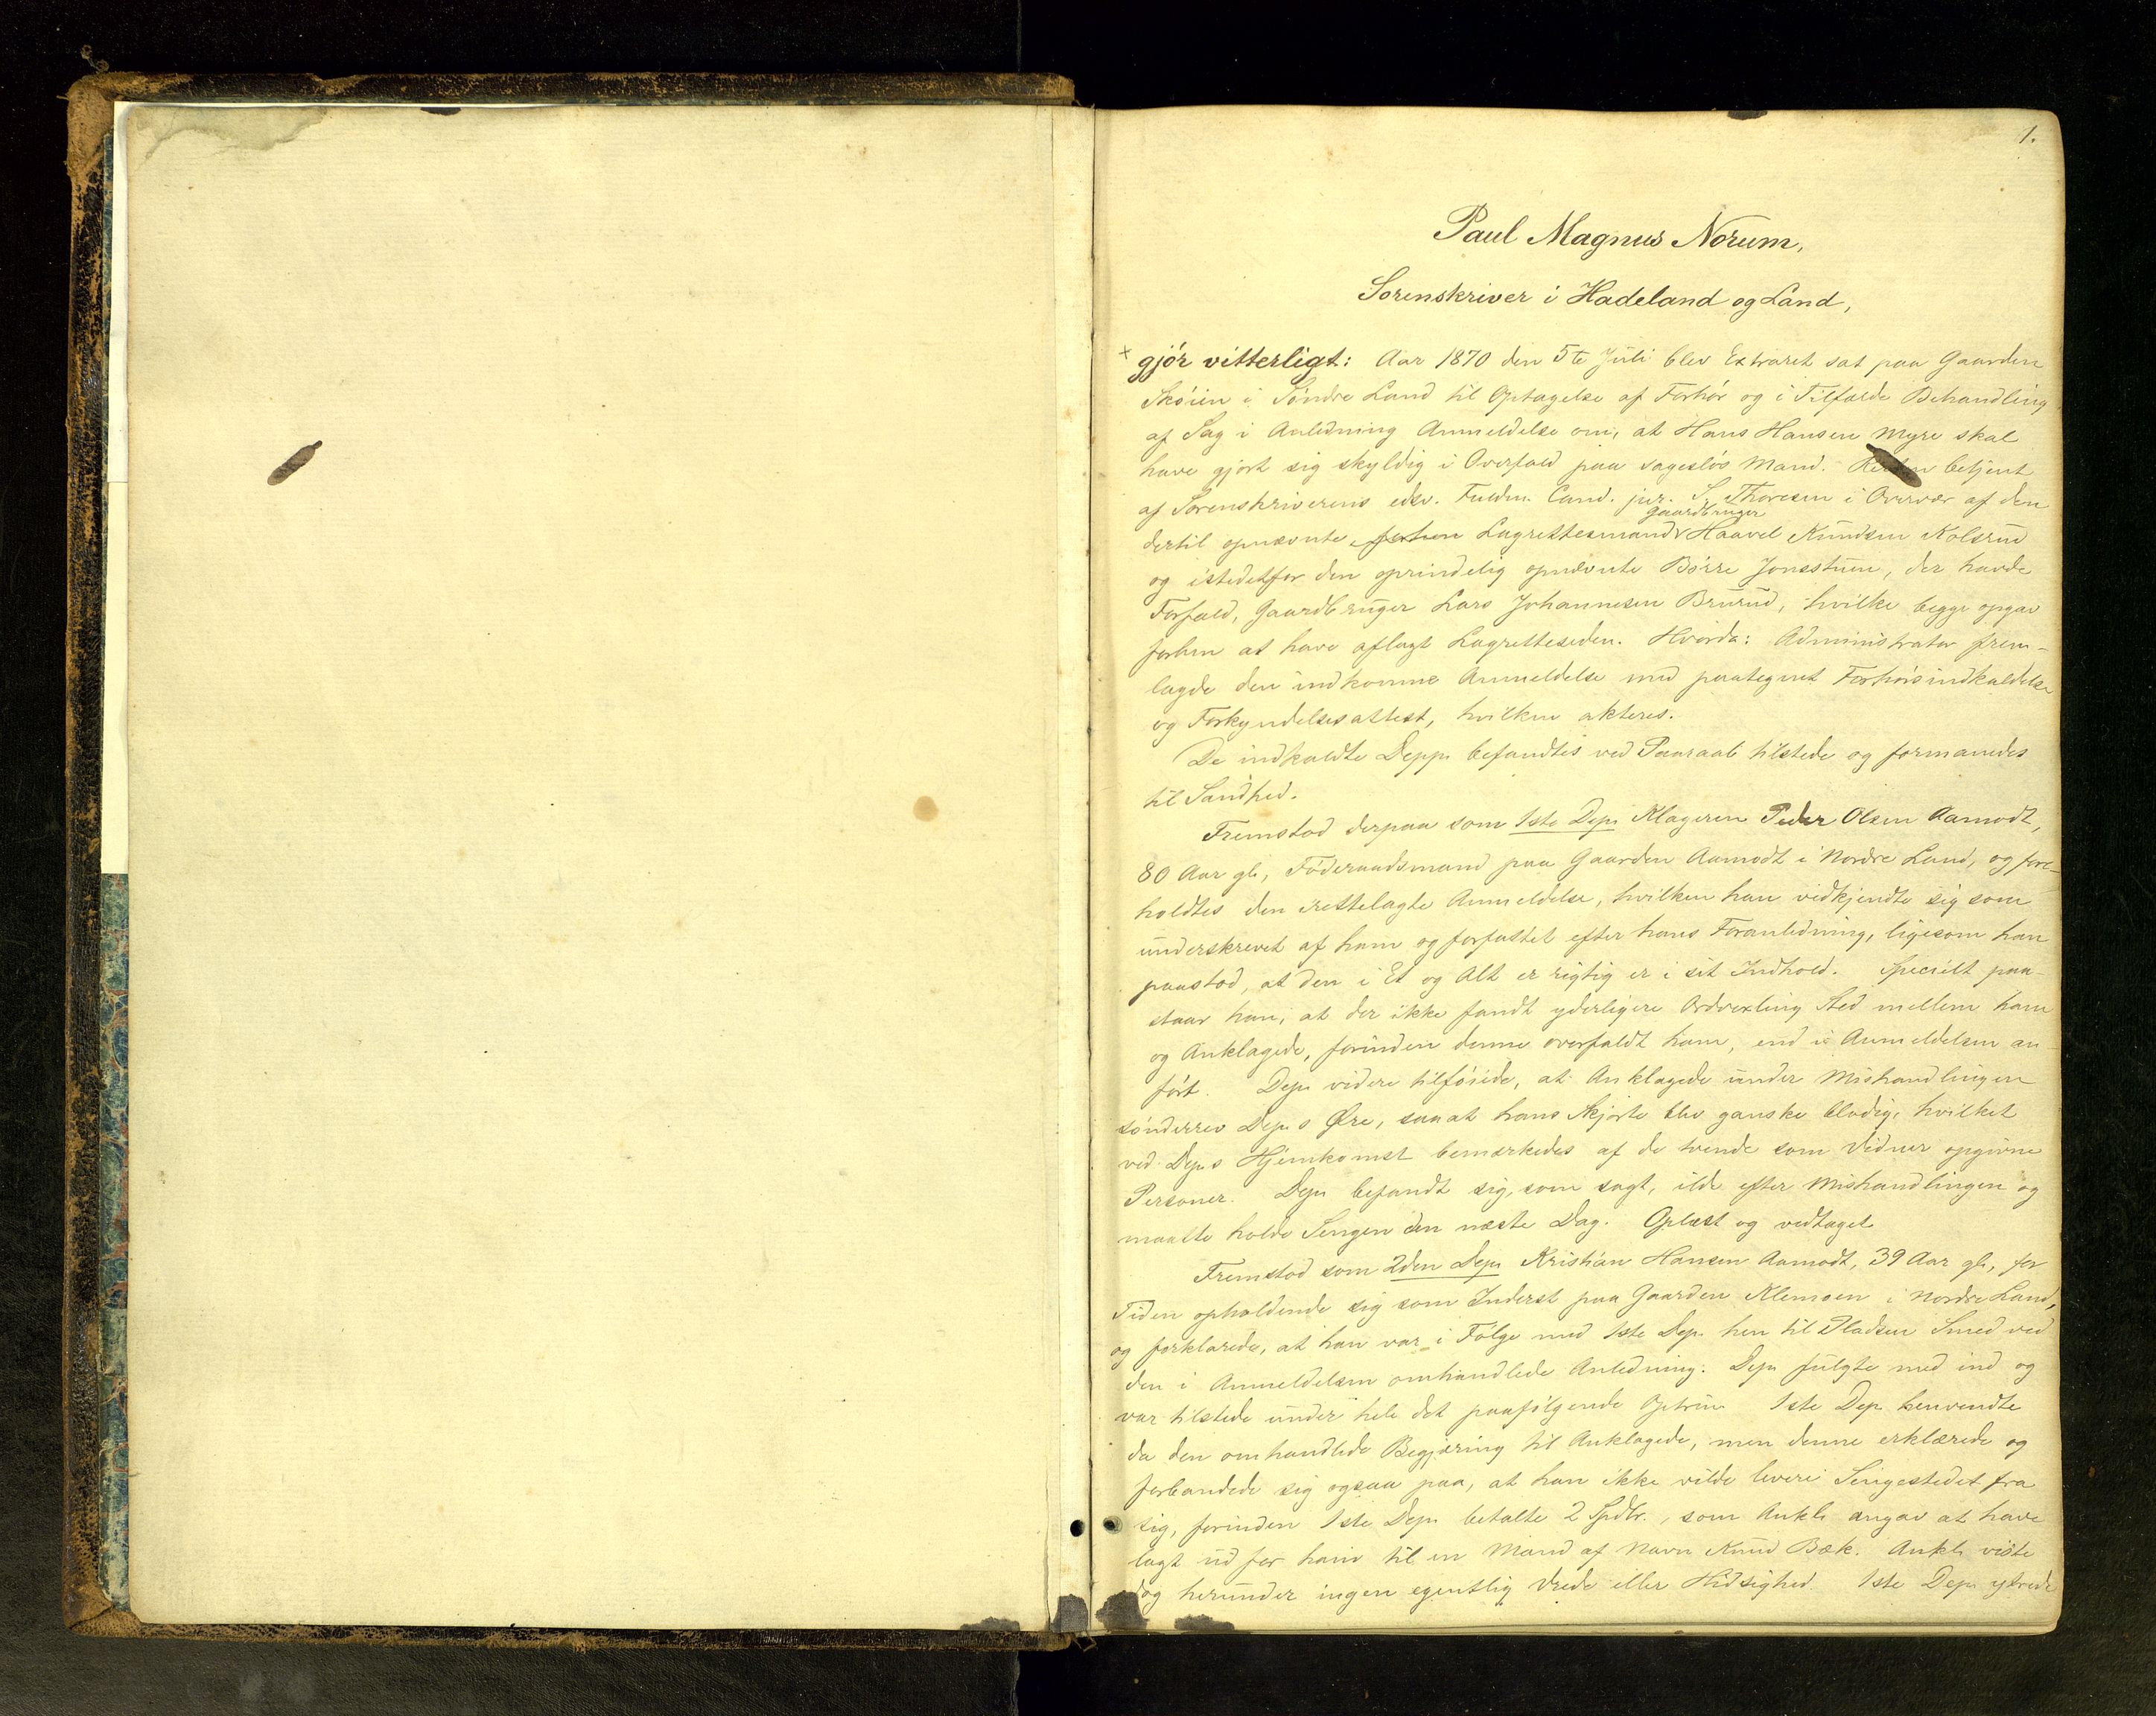 1.
Paul Magnus Norum,
Sorenskriver i Hadeland og Land,
gjör vitterligt: Aar 1870 den 5te Juli blev Extraret sat paa Gaarden
Sköien i Söndre Land til Optagelse af Forhör og i Tilfælde Behandling
af Sag i Anledning Anmeldelse om, at Hans Hansen Myre skal
have gjort sig skyldig i Overfald paa sageslös Mand. Retten betjent
af Sorenskriverens edsv. Fuldm. Cand. jur. S. Thoresen i Overvær af den
gaardbruger
dertil opnævnte Lagrettesmand Haavel Knudsen Kolsrud
og istedetfor den oprindelig opnævnte Börre Jonsstuen, der havde
Forfald, Gaardbruger Lars Johannesen Brurud, hvilke begge opgav
forhen at have aflagt Lagretteseden. Hvorda: Administrator frem-
lagde den indkomne Anmeldelse med paategnet Forhörsindkaldelse
og Forkyndelsesattest, hvilken akteres.
De indkaldte Depp. befandtes ved Paaraab tilstede og formanedes
til Sandhed.
Fremstod derpaa som 1ste Dep. Klageren Peder Olsen Aamodt,
80 Aar gl., Föderaadsmand paa Gaarden Aamodt i Nordre Land, og fore-
holdtes den irettelagte Anmeldelse, hvilken han vedkjendte sig som
underskrevet af ham og forfattet efter hans Foranledning, ligesom han
paastod, at den i Et og Alt er rigtig er i sit Indhold. Specielt paa-
staar han, at der ikke fandt yderligere Ordvexling Sted mellem ham
og Anklagede, forinden denne overfaldt ham, end i Anmeldelsen an-
fört. Dep. videre tilföiede, at Anklagede under Mishandlingen
sönderrev Dep.s Øre, saaat hans Skjorte blev ganske blodig, hvilket
ved Dep.s Hjemkomst bemærkedes af de tvende som Vidner opgivne
Personer. Dep. befandt sig, som sagt, ilde efter Mishandlingen og
maatte holde Sengen den næste Dag. Oplæst og vedtaget.
Fremstod som 2den Dep. Kristian Hansen Aamodt, 39 Aar gl., for
Tiden opholdende sig som Inderst paa Gaarden Klemoen i Nordre Land,
og forklarede, at han var i Fölge med 1ste Dep. hen til Pladsen Smed ved
den i Anmeldelsen omhandlede Anledning. Dep. fulgte med ind og
var tilstede under hele det paafölgende Optrin. 1ste Dep. henvendte
da den omhandlede Begjæring til Anklagede, men denne erklærede og
forbandede sig ogsaa paa, at han ikke vilde levere Sengestedet fra
sig, forinden 1ste Dep. betalte 2 Spdlr., som Ankl. angav at have
lagt ud for ham til en Mand af Navn Knud Bæk. Ankl. viste
dog herunder ingen egentlig Vrede eller Hidsighed. 1ste Dep. ytrede